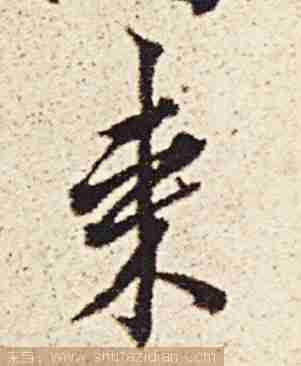 東
来自：www.shufazidian.com